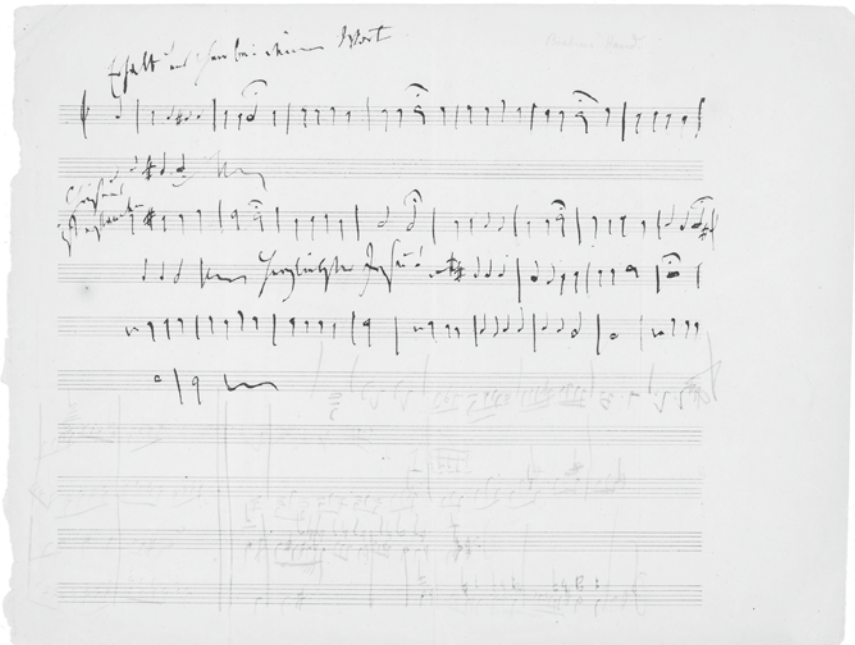 Erhalt uns Herr bei deinem Wort
Brahms' Hand.
Herzliebster Jesu